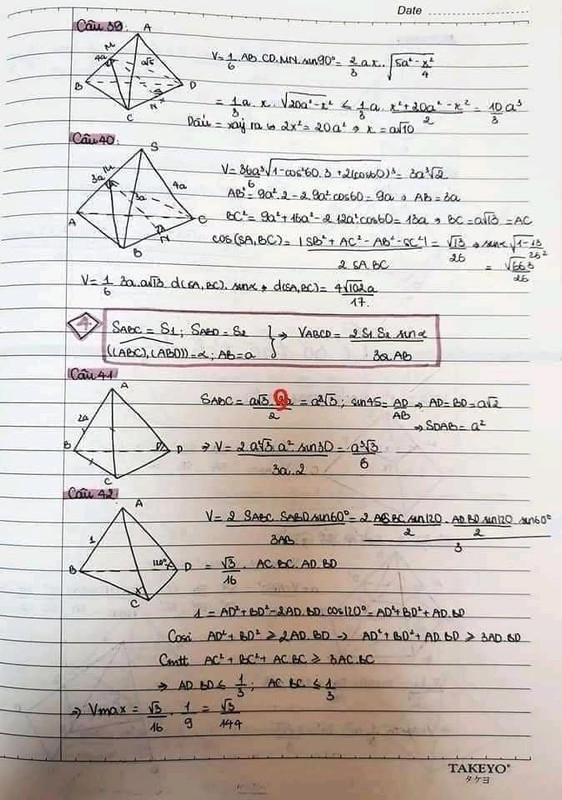 Date
Câu 39:
V = 1/6 . AB . CD . MN . sin90° = 2/3 ax . √(5a² - x²/4)
= 1/3 a . x . √(20a² - x²) ≤ 1/3 a . (x² + 20a² - x²)/2 = 10/3 a³
Dấu = xảy ra ⇔ 2x² = 20a² ⇒ x = a√10
A M 4a B D C N x
Câu 40
V = 36a³/6 √(1 - cos²60.3 + 2(cos60)³) = 3a³√2
AB² = 9a².2 - 2.9a²cos60 = 9a ⇒ AB = 3a
BC² = 9a² + 16a² - 2.12a²cos60 = 13a ⇒ BC = a√13 = AC
cos(SA,BC) = |SB² + AC² - AB² - SC²| / 2SA.BC = √13/26
S M 3a 3a 4a A C B N
V = 1/6 3a.a√13 d(SA,BC). sinα ⇒ d(SA,BC) = 4√102a/17.
4 SABC = S1; SABD = S2
((ABC),(ABD)) = α; AB = a } ⇒ VABCD = 2S1 S2 sinα / 3a AB
Câu 41
SABC = a√3 . 2a / 2 = a²√3; sin45 = AD/AB ⇒ AD = BD = a√2
⇒ SDAB = a²
⇒ V = 2 a²√3 . a² sin30 / 3a.2 = a³√3/6
A 2a B D C
Câu 42:
V = 2 SABC . SABD sin60° / 3AB = 2 . AC.BC.sin120/2 . AD.BD sin120/2 . sin60° / 3
= √3/16 . AC.BC.AD.BD
A 1 B 120° D C
1 = AD² + BD² - 2AD.BD.cos120° = AD² + BD² + AD.BD
Cosi AD² + BD² ≥ 2AD.BD → AD² + BD² + AD.BD ≥ 3AD.BD
Cmtt AC² + BC² + AC.BC ≥ 3AC.BC
⇒ AD.BD ≤ 1/3; AC.BC ≤ 1/3
⇒ Vmax = √3/16 . 1/9 = √3/144
TAKEYO®
タケヨ